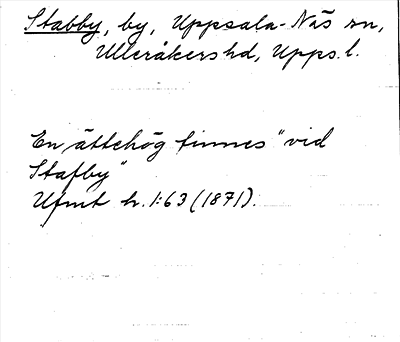 Stabby, by, Uppsala-Näs sn,
Ulleråkers hd, Upps. l.
En ättehög finnes "vid
Stafby"
Ufmt h. 1:63 (1871).